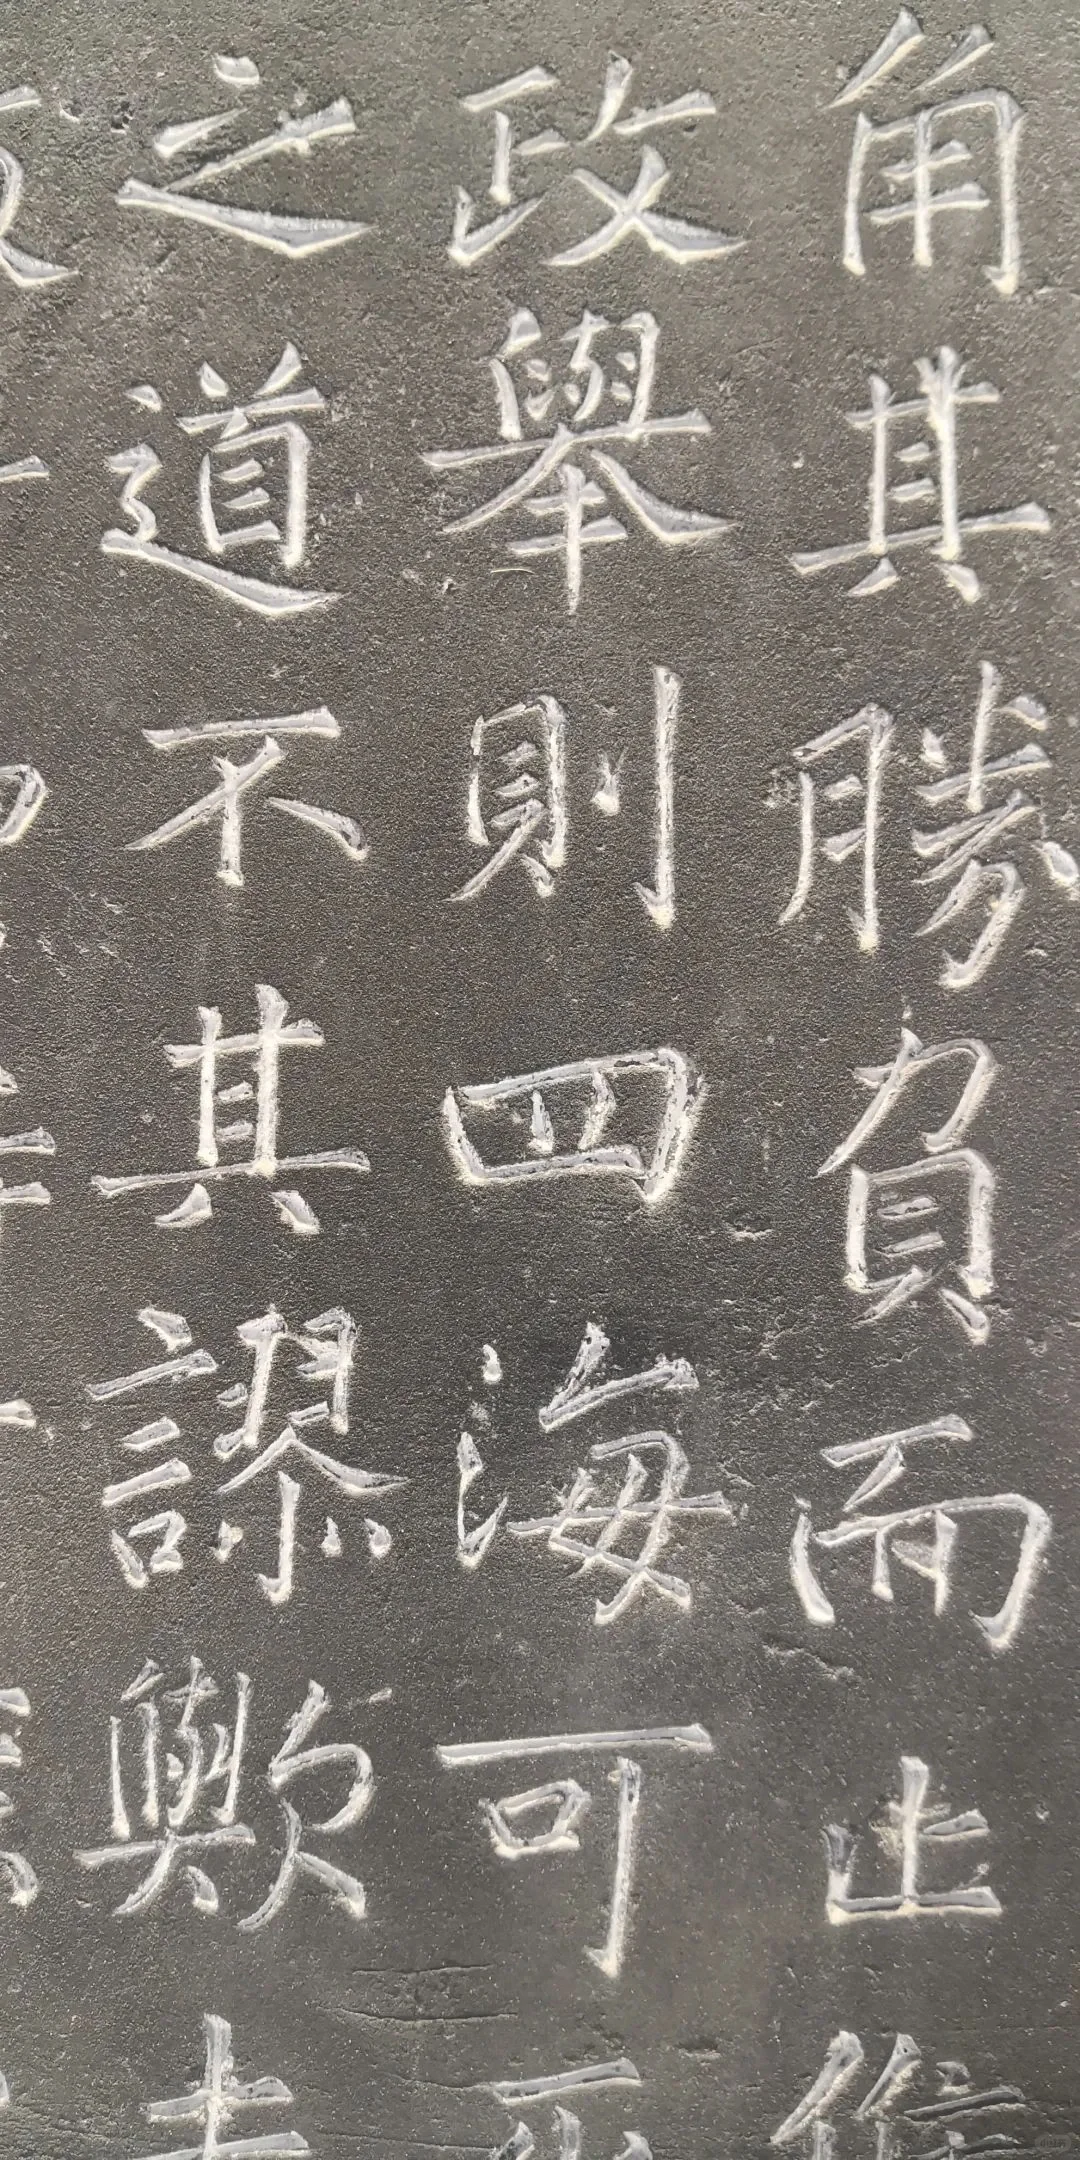 角其勝負而止
政舉則四海可
之道不其謬歟